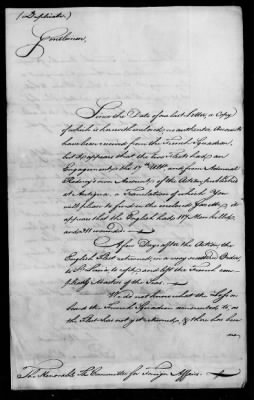 (Duplicate.)
Gentlemen,
Since the Date of our last Letter, a Copy
of which is herewith inclosed, no authentic Accounts
have been received from the French Squadron,
but it appears that the two Fleets had an
Engagement the 17th and from Admiral
Rodney's own Account of the Action, published
at Antigua, a Translation of which You
will please to find in the inclosed Gazette, it
appears that the English had 117 Men killed,
and wounded.
A few Days after the Action, the
English Fleet returned, in a very Order,
to St. Lucia, to refit, and left the French com-
pleatly Masters of the Seas.
We do not know what the Loss on
board the French Squadron amounted to, as
the Fleet has not yet returned, & there has been
no,
The Honorable The Committee for Foreign Affairs.